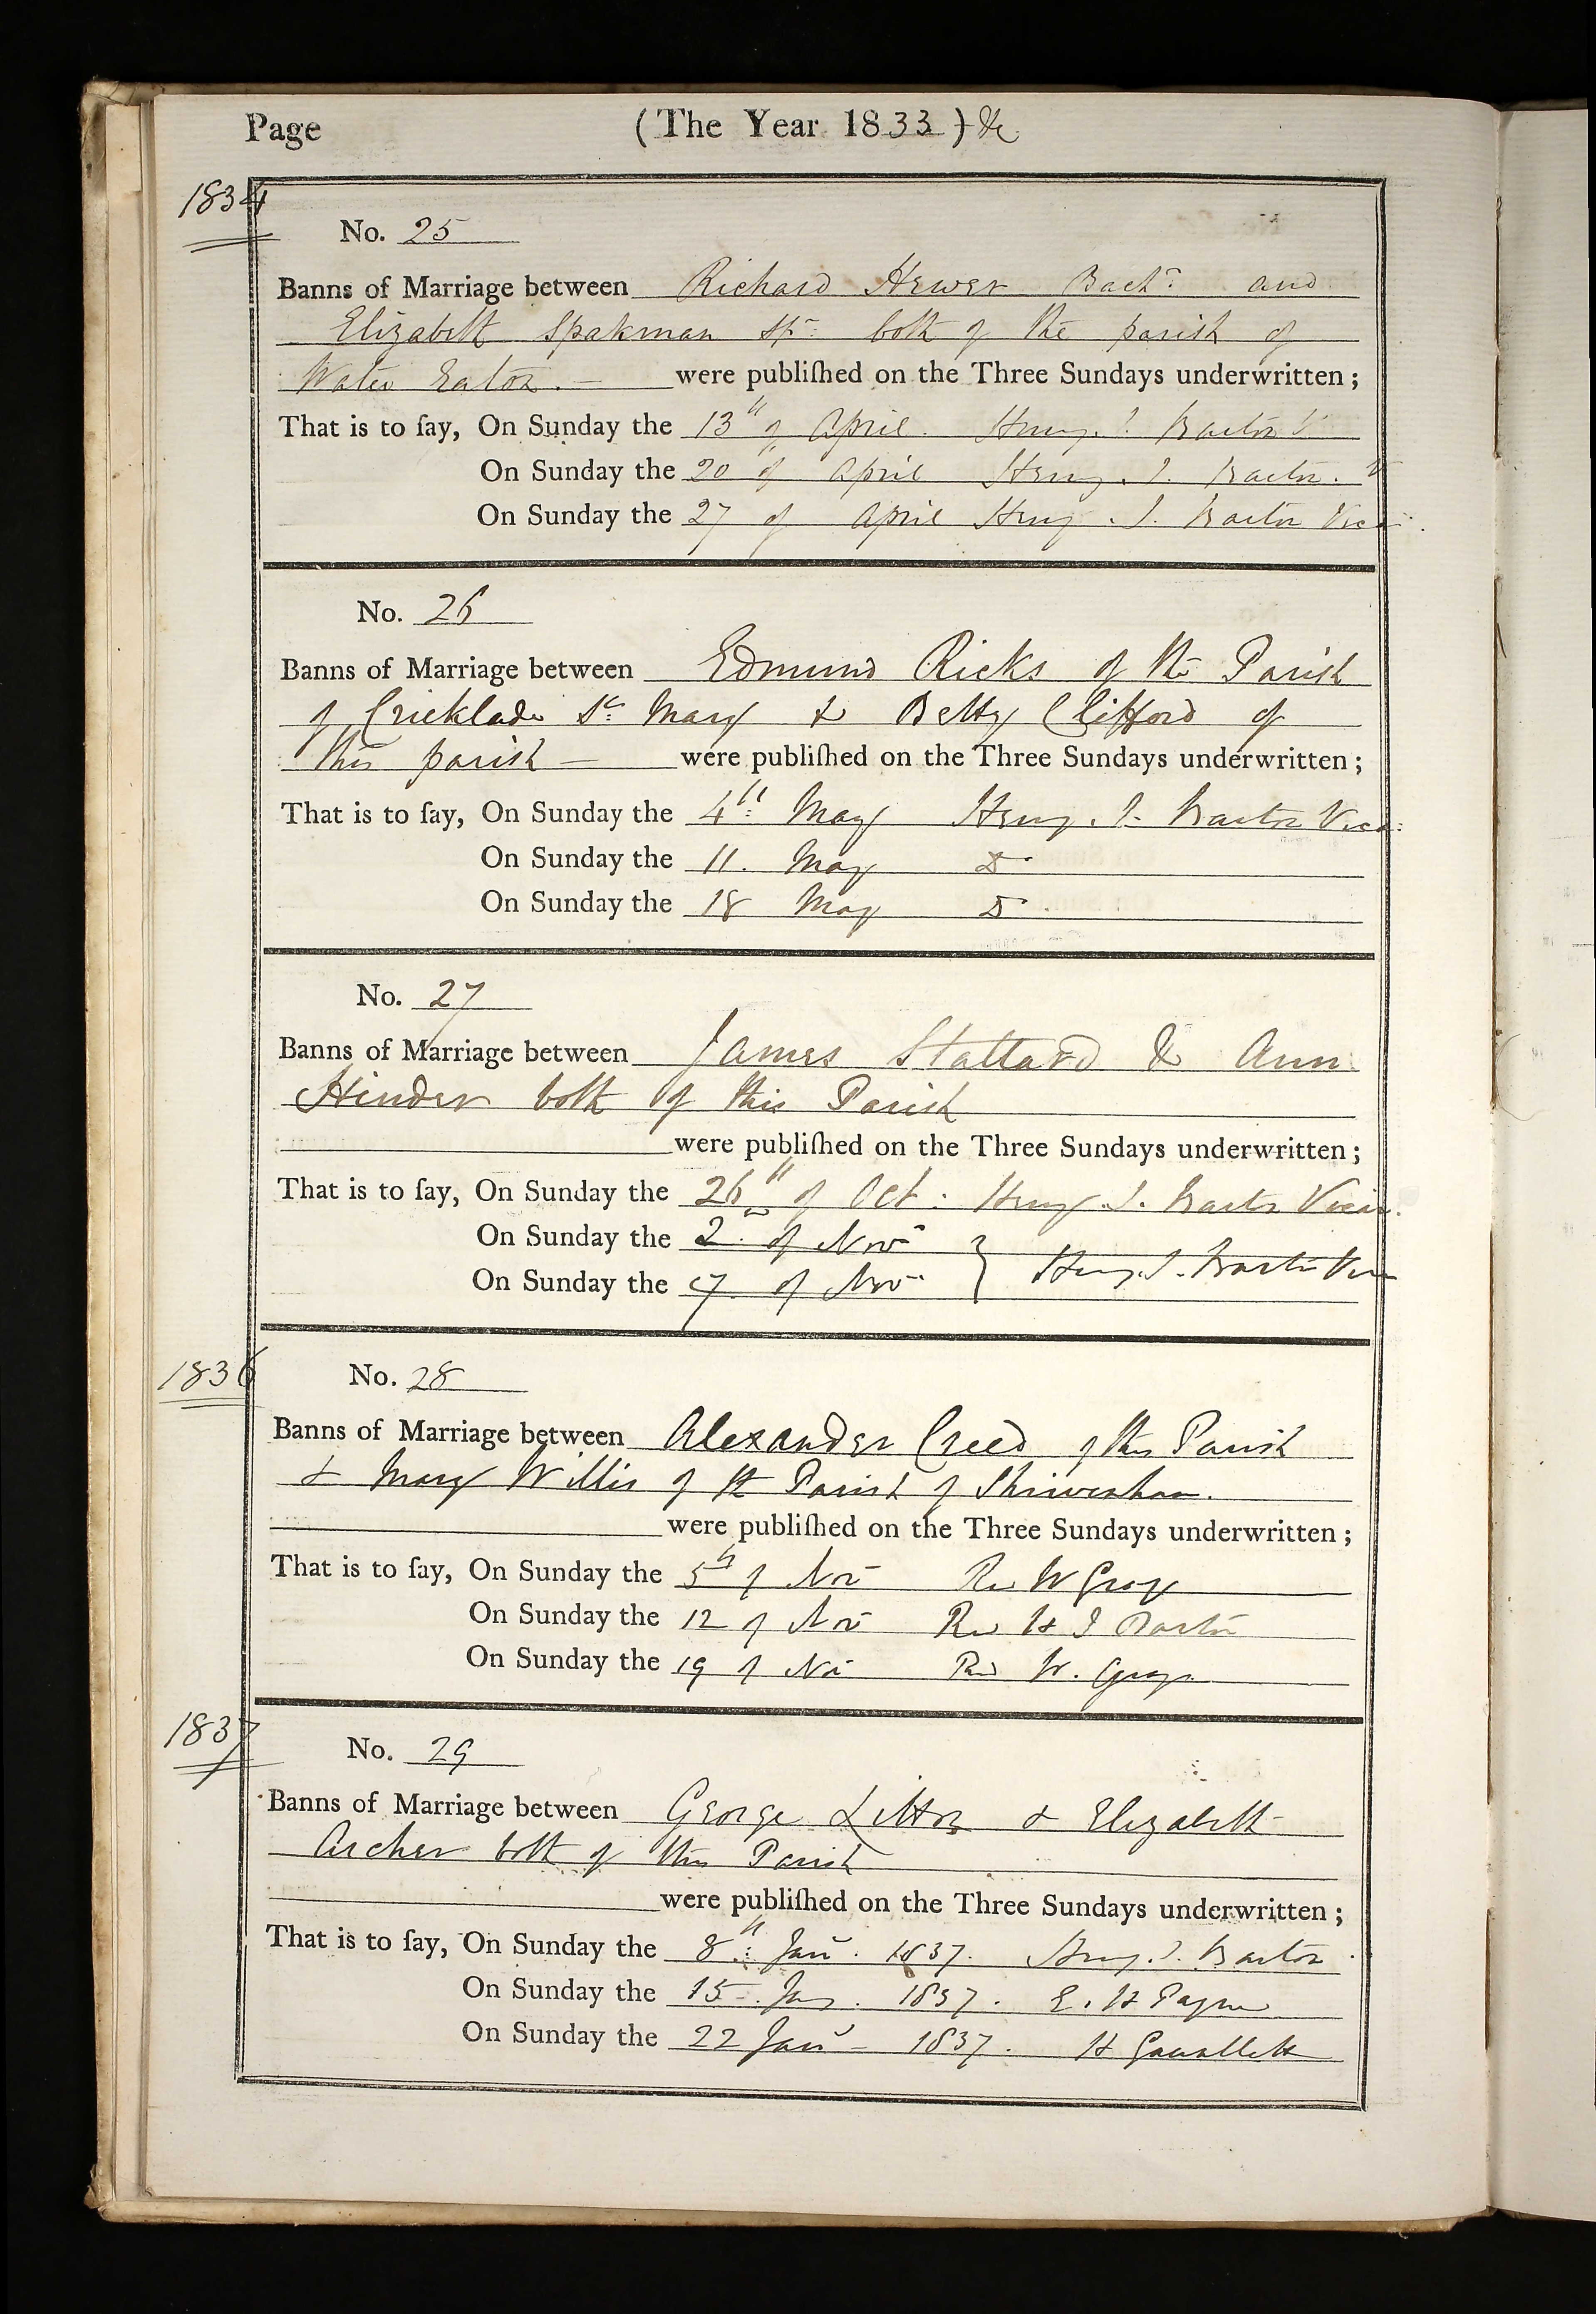 Page (The Year 1833) &c
1834
No. 25
Banns of Marriage between Richard Hewer Bachr. and
Elizabeth Spakman Spr. both of the parish of
Water Eaton. — were publiſhed on the Three Sundays underwritten;
That is to ſay, On Sunday the 13th of April. Henry. I. Barton V
On Sunday the 20 of April Henry. I. Barton. V
On Sunday the 27 of April Henry. I. Barton Vicar.
No. 26
Banns of Marriage between Edmund Ricks of the Parish
of Cricklade St. Mary & Betty Clifford of
this parish — were publiſhed on the Three Sundays underwritten;
That is to ſay, On Sunday the 4th May Henry. I. Barton Vicar
On Sunday the 11. May Do.
On Sunday the 18 May Do.
No. 27
Banns of Marriage between James Stallard & Ann
Hinder both of this Parish
were publiſhed on the Three Sundays underwritten;
That is to ſay, On Sunday the 26th of Oct: Henry I. Barton Vicar.
On Sunday the 2. of Nov
On Sunday the 9 of Nov } Henry. I. Barton Vicar
1836
No. 28
Banns of Marriage between Alexander Creed of this Parish
& Mary Willis of the Parish of Shrivenham.
were publiſhed on the Three Sundays underwritten;
That is to ſay, On Sunday the 5th of Nov Rev W Gray
On Sunday the 12 of Nov Rev H I Barton
On Sunday the 19 of Nov Rev W. Gray
1837
No. 29
Banns of Marriage between George Litton & Elizabeth
Archer both of this Parish
were publiſhed on the Three Sundays underwritten;
That is to ſay, On Sunday the 8th Jan. 1837. Henry. I. Barton
On Sunday the 15 Jan. 1837. E. H Payne
On Sunday the 22 Jan 1837. H